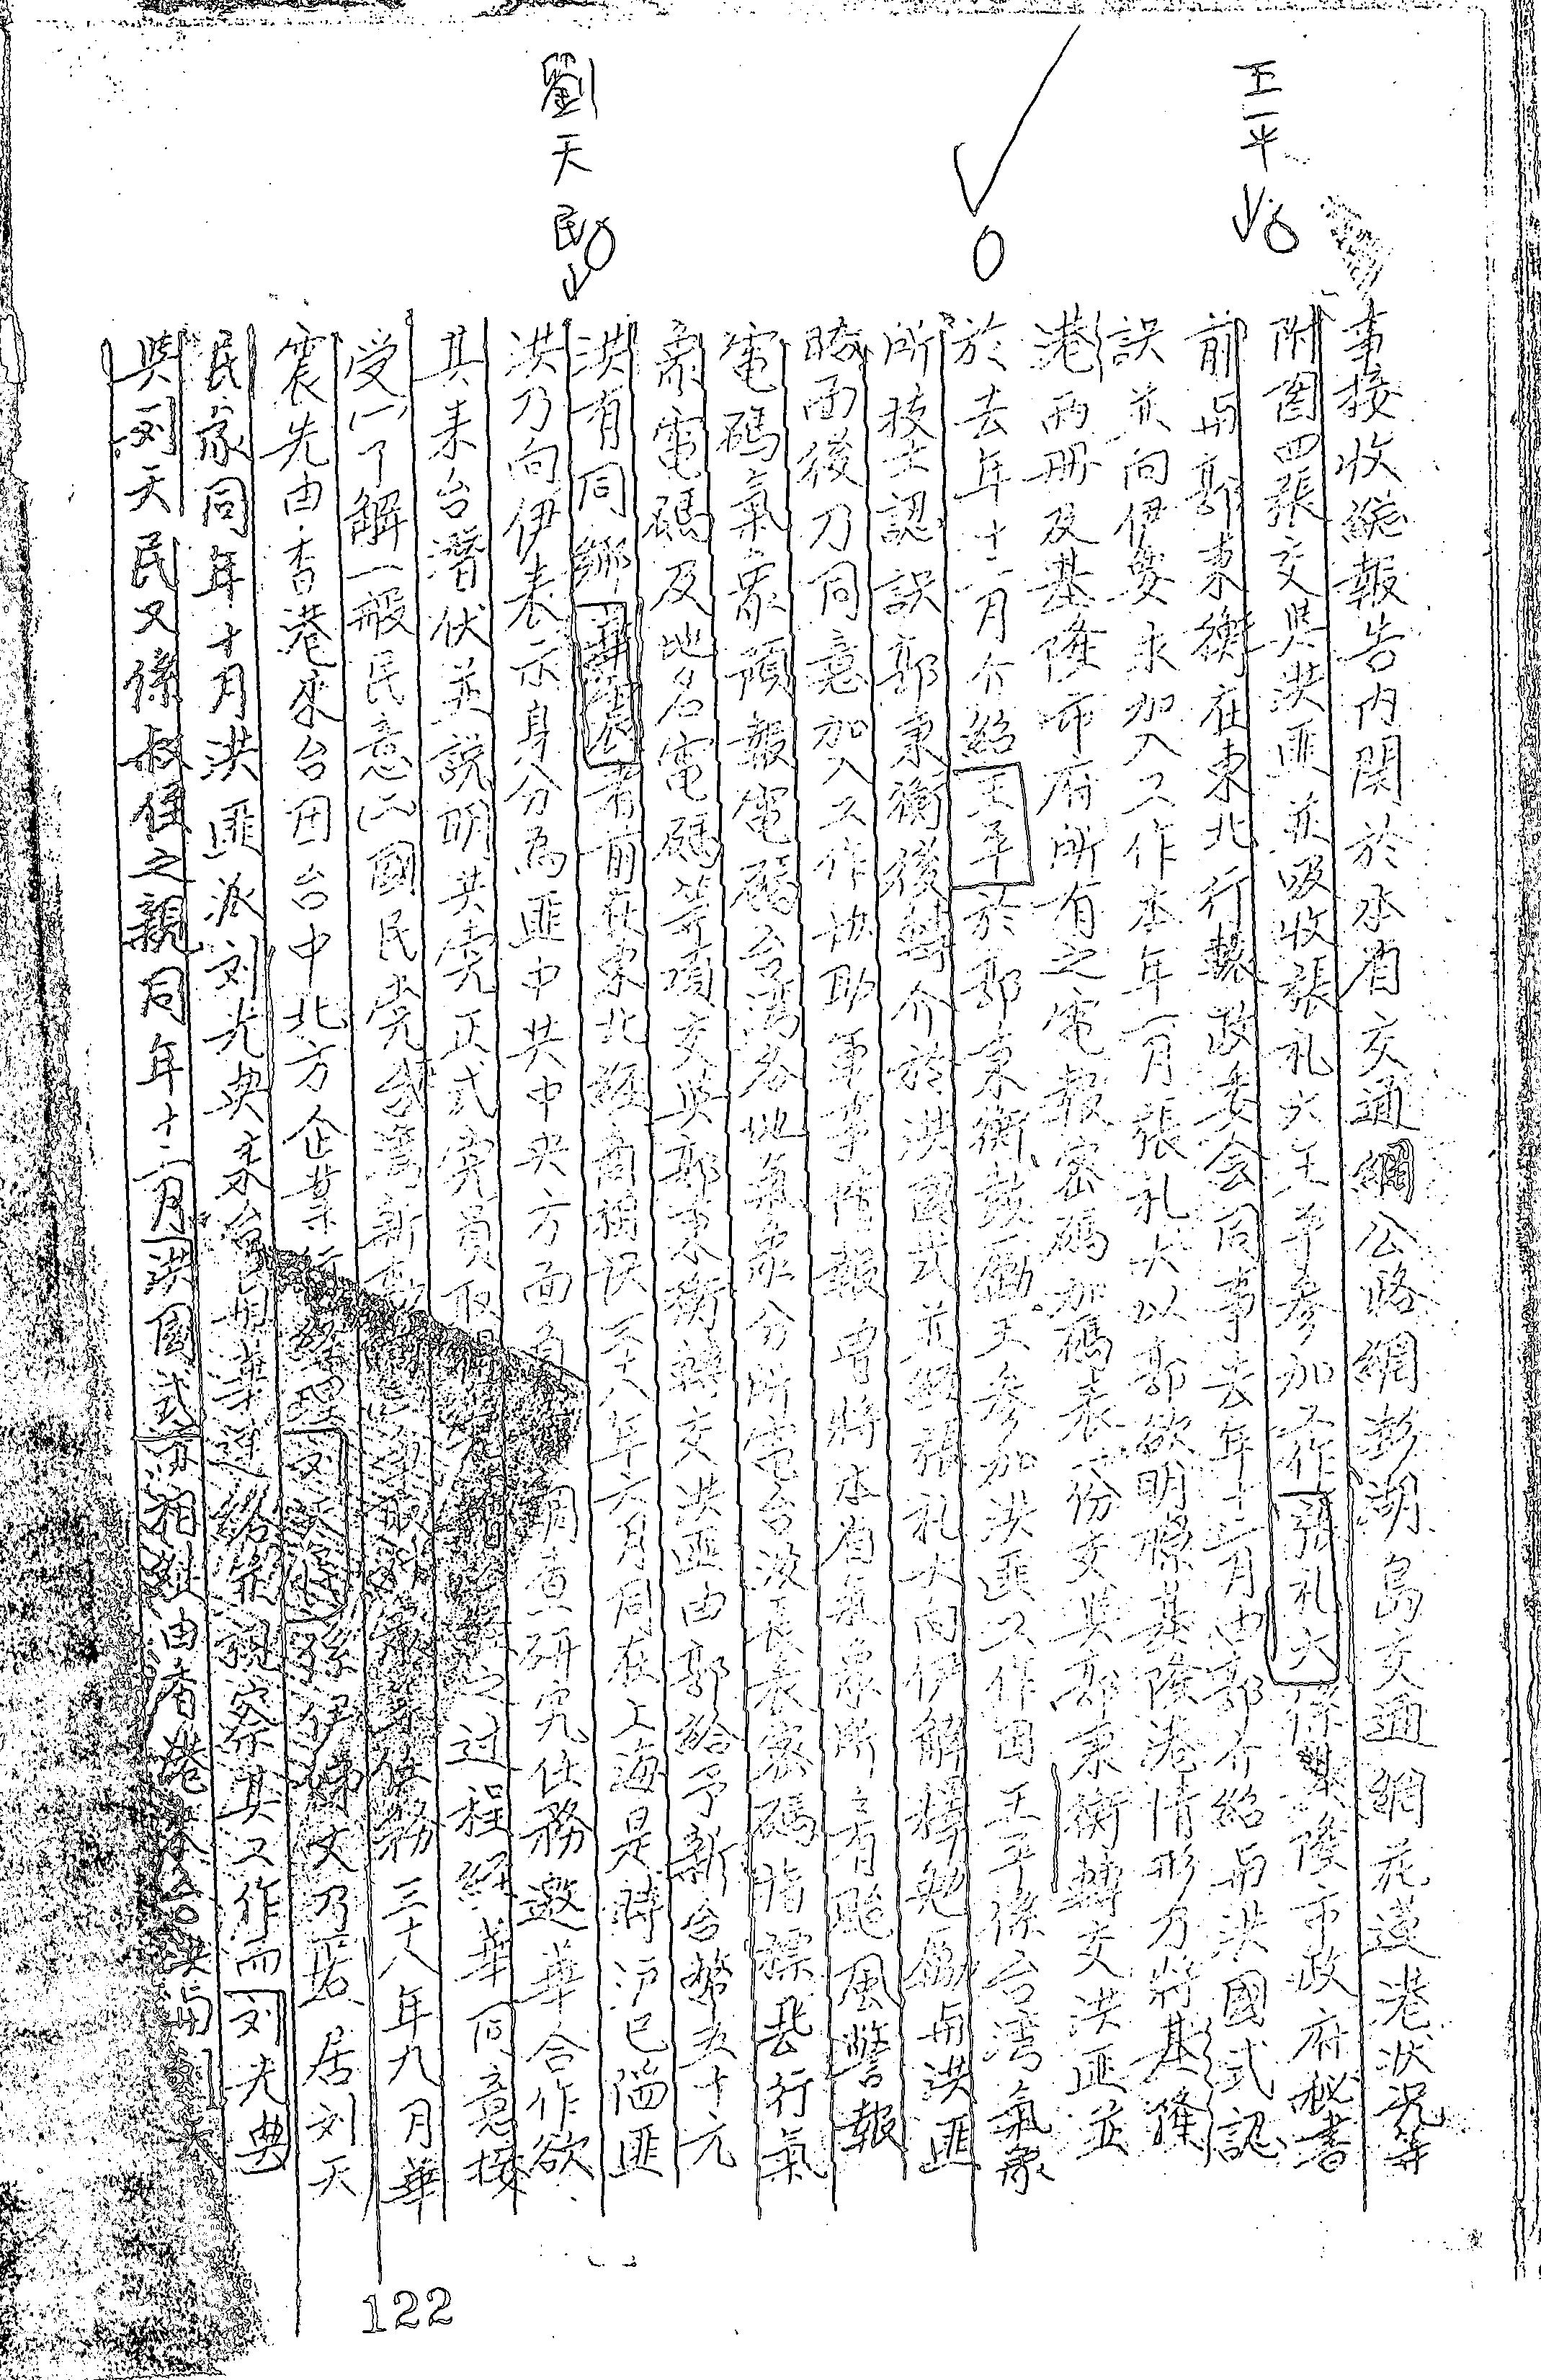 王平
劉天民
事接收總報告內関於本省交通網公路網澎湖島交通網花蓮港狀況等
附圖四張交與洪匪並吸收張礼大王平參加工作張礼大係基隆市政府秘書
前与郭秉衡在東北行轅政委会同事去年十二月由郭介紹与洪國式認
誤並向伊要求加入工作本年一月張礼大以郭欲明瞭基隆港情形乃將基隆
港兩冊及基隆市府所有之電報密碼加碼表一份交與郭秉衡轉交洪匪並
於去年十一月介紹王平於郭秉衡鼓勵王參加洪匪工作因王平係台湾氣象
所技士認誤郭秉衡後轉介於洪國式並經張礼大向伊解釋勉勵与洪匪
晤面後乃同意加入工作協助軍事情報曾將本省氣象所之有颱風警報
電碼氣象預報電碼台湾各地氣象分所電台波長表密碼指標飛行氣
象電碼及地名電碼等項交與郭秉衡轉交洪匪由郭給予新台幣五十元
洪有同鄉華者前在東北經商相识三十八年六月同在上海是時沪已陷匪
洪乃向伊表示身分為匪中共中央方面調查研究任務邀華合作欲
其来台潛伏並説明共党正式党員取得之过程經華同意接
受(一)了解一般民意(二)國民党台湾新任務三十八年九月華
震先由香港來台因台中北方企業行經理刘天民係伊姊丈乃暫居刘天
民家同年十月洪匪派刘光典來台紹華視察其工作而刘光典
與刘天民又係叔侄之親同年十二月洪國式由香港來台洪与
122